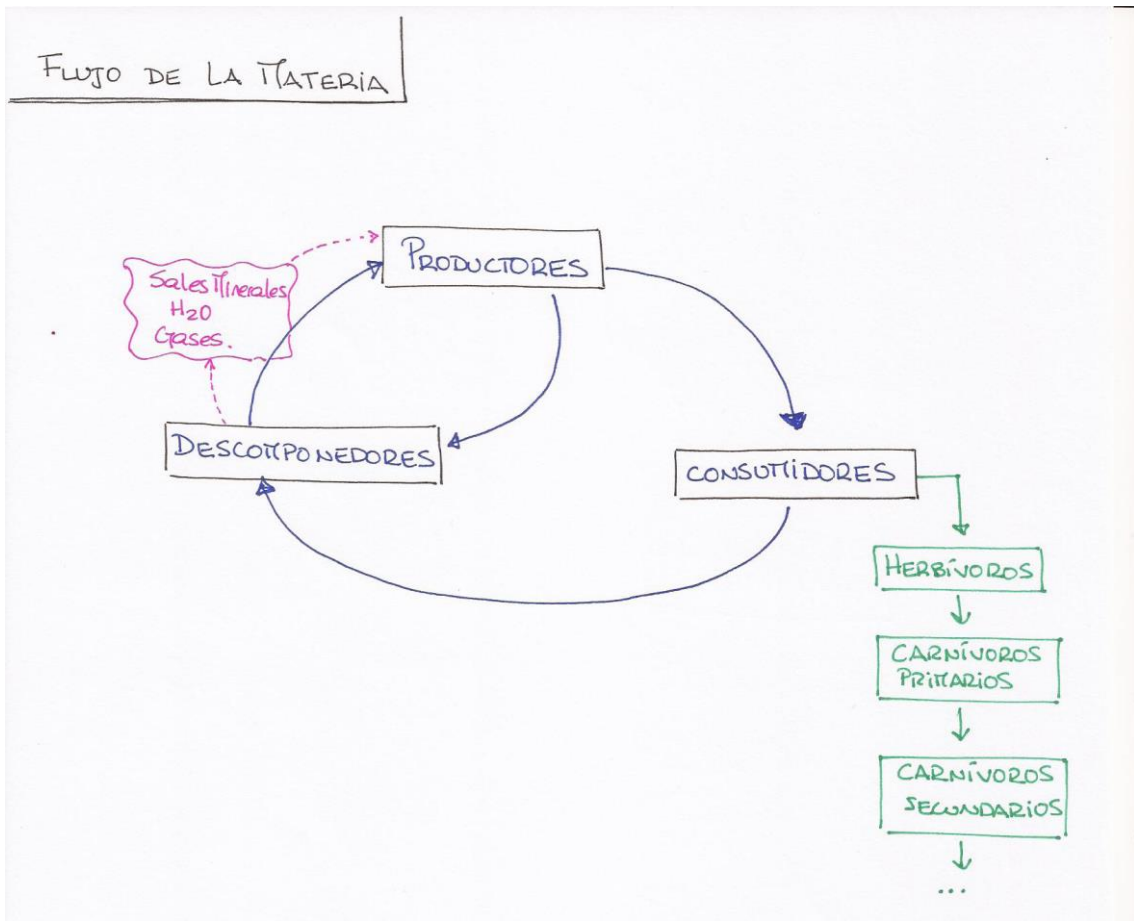 FLUJO DE LA MATERIA
PRODUCTORES
Sales Minerales
H2O
Gases.
DESCOMPONEDORES
CONSUMIDORES
HERBÍVOROS
CARNÍVOROS
PRIMARIOS
CARNÍVOROS
SECUNDARIOS
...